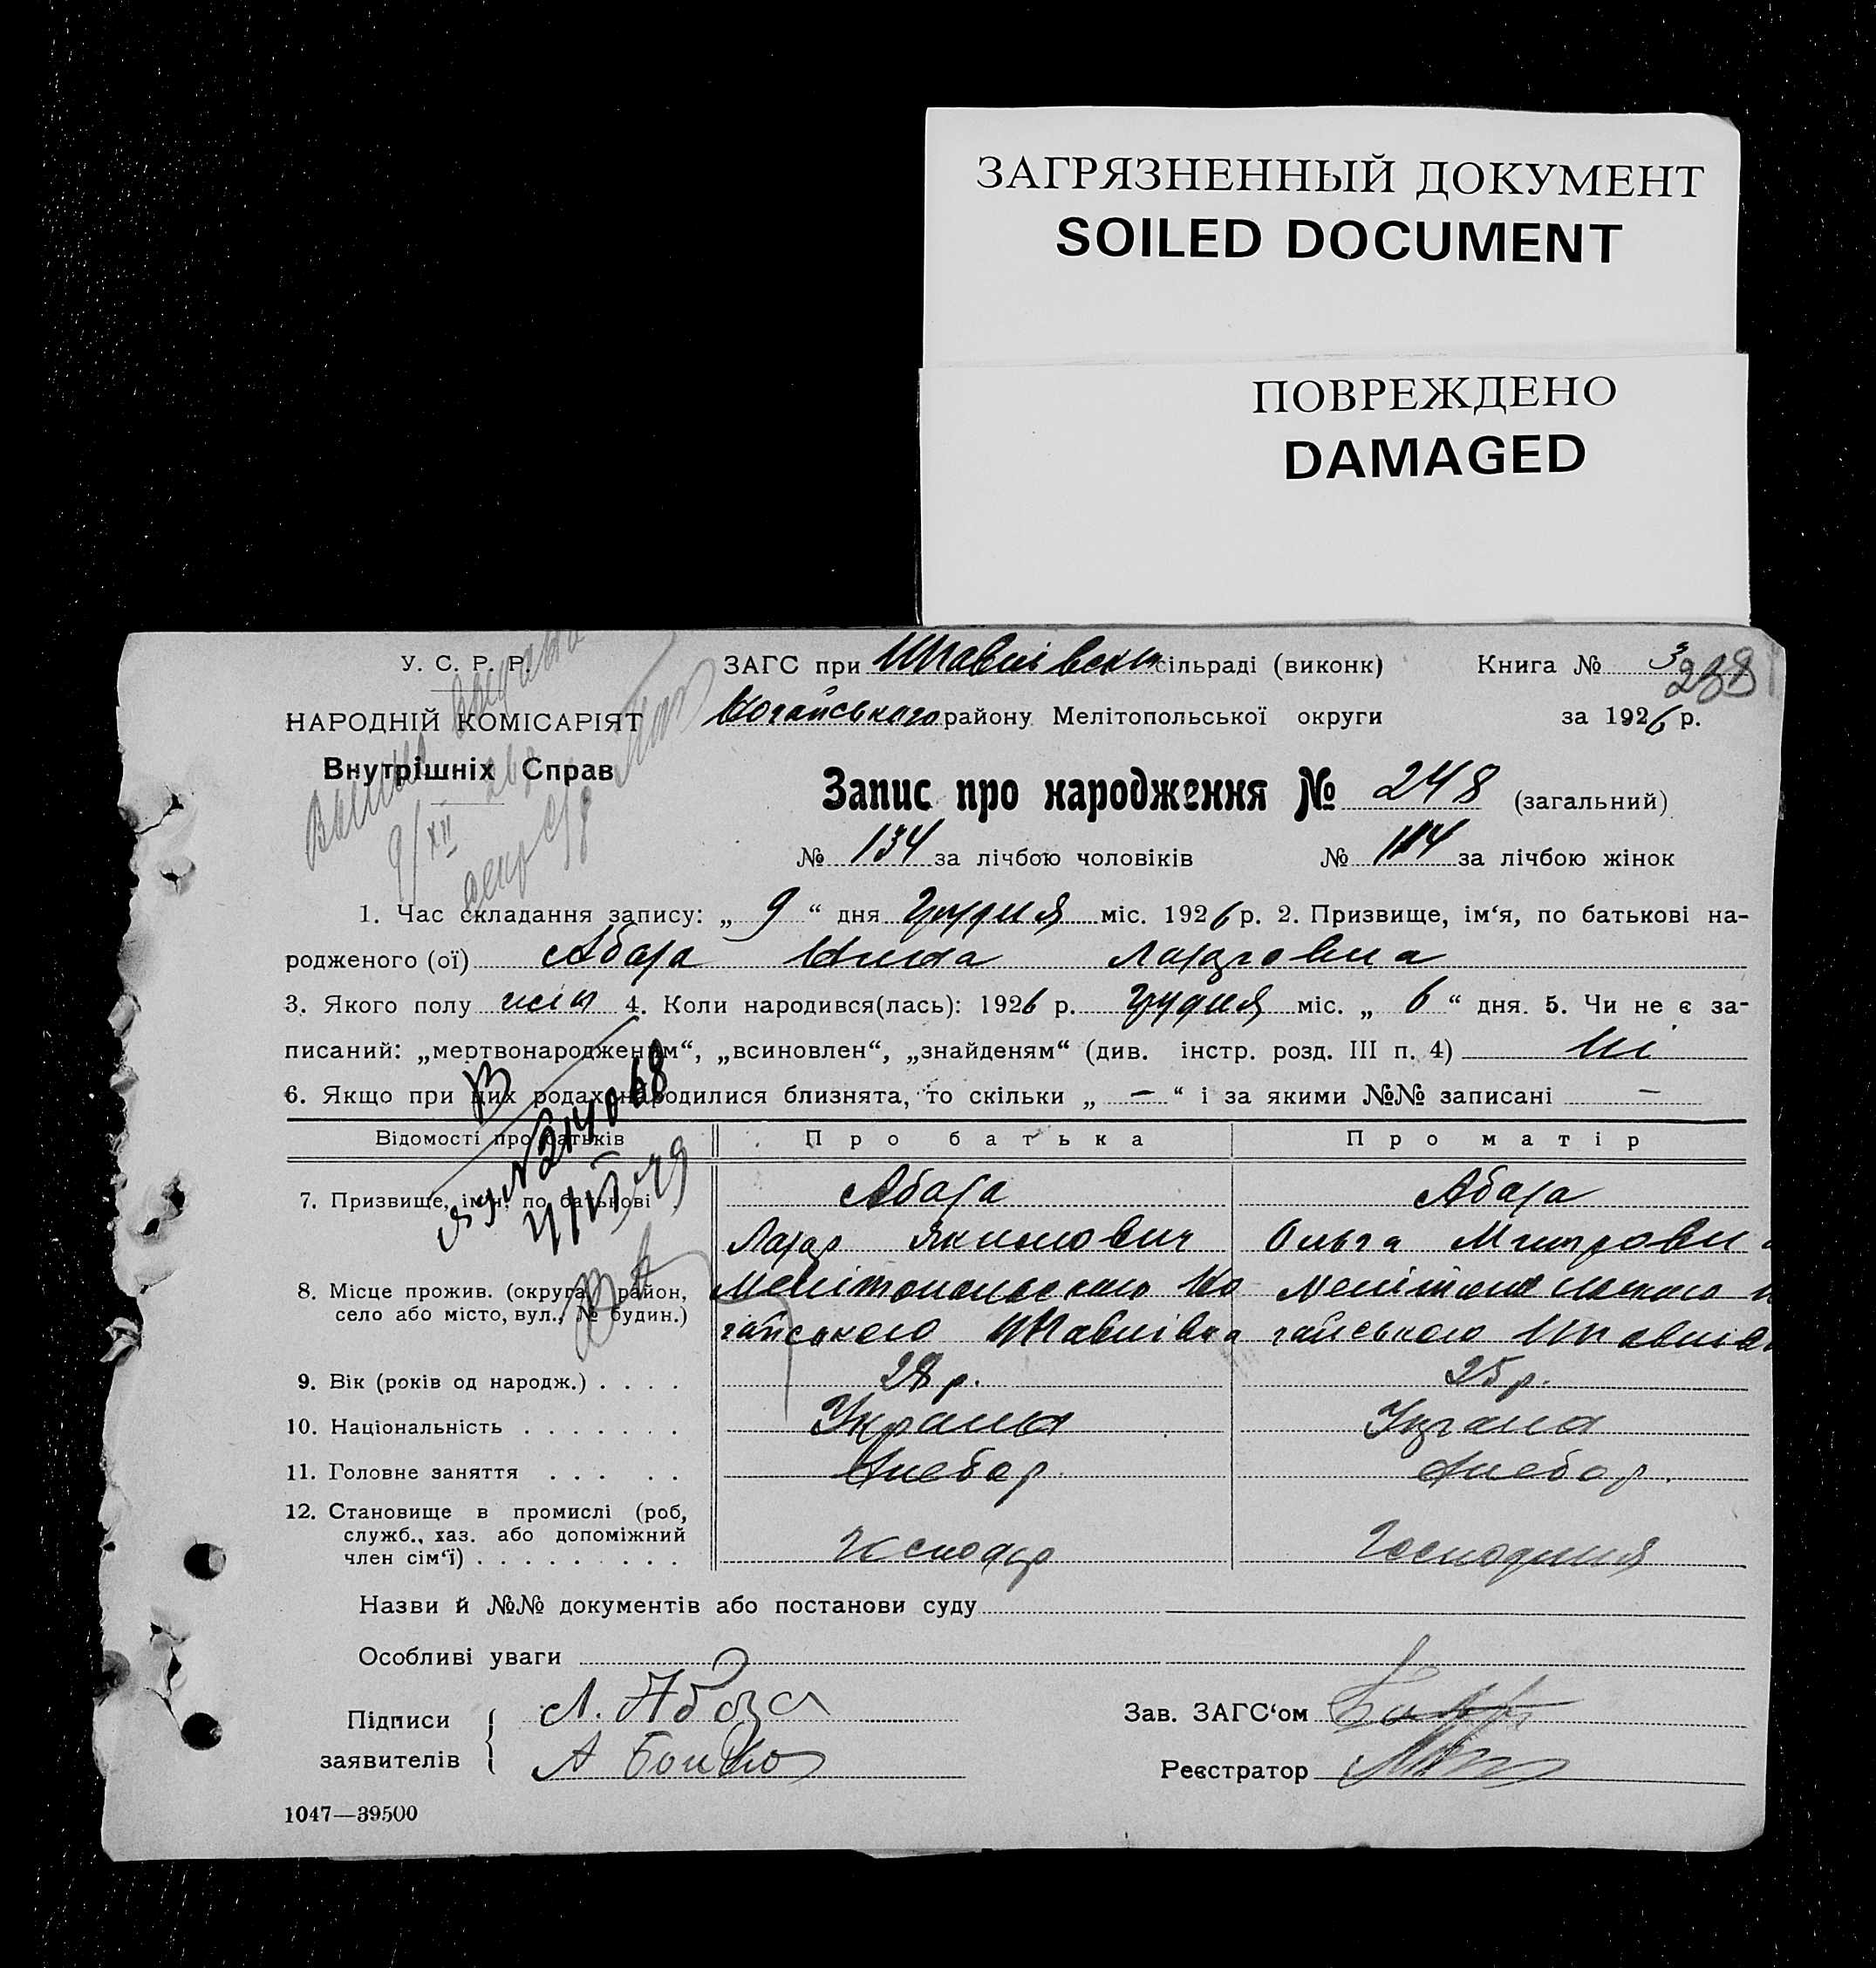 ЗАГРЯЗНЕННЫЙ ДОКУМЕНТ
SOILED DOCUMENT
ПОВРЕЖДЕНО
DAMAGED
У. С. Р. Р.
НАРОДНІЙ КОМІСАРІЯТ
Внутрішніх Справ
ЗАГС при сільраді (виконк) Книга № 3
238
Ногайського району Мелітопольської округи за 1926 р.
Запис про народження № 248 (загальний)
№ 134 за лічбою чоловіків № 114 за лічбою жінок
1. Час складання запису: „ 9 “ дня грудня міс. 1926 р. 2. Призвище, ім‘я, по батькові на-
родженого (ої) Абаза Лазаровна
3. Якого полу жін 4. Коли народився(лась): 1926 р. грудня міс. „ 6 “ дня. 5. Чи не є за-
писаний: „мертвонародженим“, „всиновлен“, „знайденям“ (див. інстр. розд. III п. 4) Ні
6. Якщо при цих родах народилися близнята, то скільки „ — “ і за якими №№ записані —
Відомості про батьків Про батька Про матір
7. Призвище, ім‘я, по батькові Абаза Абаза
Лазар Якимович Ольга Митровн
8. Місце прожив. (округа, район, Мелітопольского Но Мелітопольского
село або місто, вул., № будин.) гайського гайського
9. Вік (років од народж.) . . . . 28 р. 25 р.
10. Національність . . . . . . . Украна Украна
11. Головне заняття . . . . . Хлебор. Хлебор.
12. Становище в промислі (роб,
служб., хаз. або допоміжний
член сім‘ї) . . . . . . . . . Господар Господиня
Назви й №№ документів або постанови суду
Особливі уваги
Підписи Л. Абаза Зав. ЗАГС‘ом
заявителів А Бойко Реєстратор
1047—39500